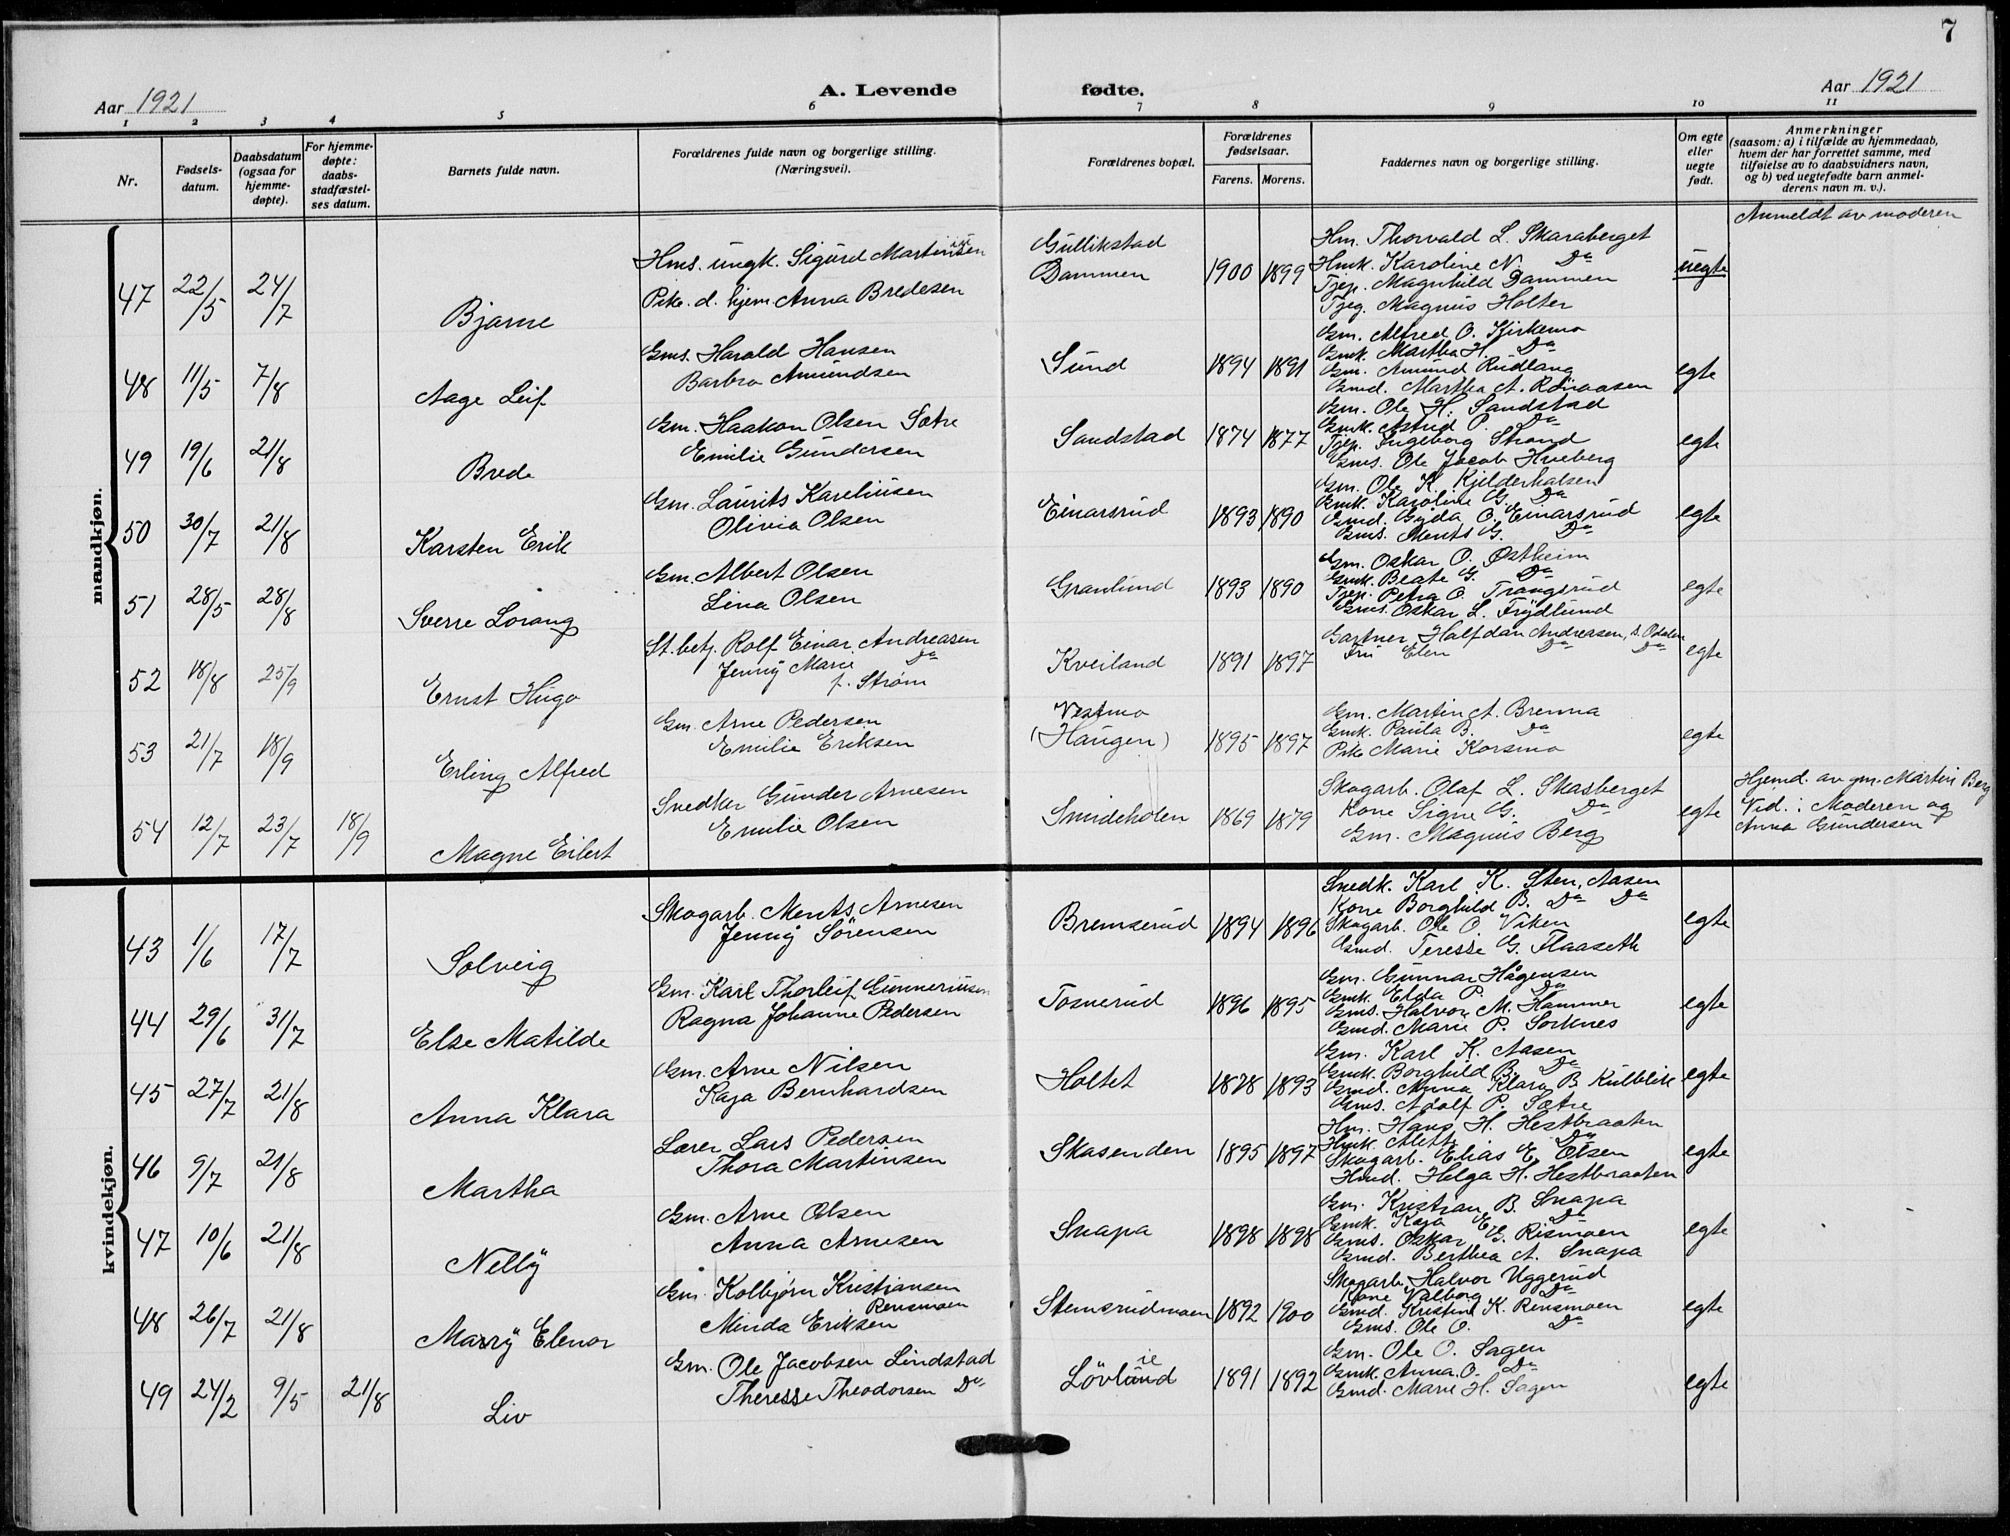 7
Aar 1921
A. Levende fødte.
Aar 1921
1 2 3 4 5 6 7 8 9 10 11
Nr.
Fødsels-
datum.
Daabsdatum
(ogsaa for
hjemme-
døpte).
For hjemme-
døpte:
daabs-
stadfæstel-
ses datum.
Barnets fulde navn.
Forældrenes fulde navn og borgerlige stilling.
(Næringsvei).
Forældrenes bopæl.
Forældrenes
fødselsaar.
Farens. Morens.
Faddernes navn og borgerlige stilling.
Om egte
eller
uegte
født.
Anmerkninger
(saasom: a) i tilfælde av hjemmedaab,
hvem der har forrettet samme, med
tilføielse av to daabsvidners navn,
og b) ved uegtefødte barn anmel-
derens navn m. v.).
mandkjøn.
47 22/5 24/7 Bjarne
Hms. ungk. Sigurd Martinsen
Pike d. hjem. Anna Bredesen
Gullikstad
Dammen
1900 1899
Hm. Thorvald L. Skaraberget
Hmk. Karoline N. Do
Tjep. Magnhild Dammen
Tjeg. Magnus Holter
uegte
Anmeldt av moderen
48 11/5 7/8 Aage Leif
Gms. Harald Hansen
Barbro Amundsen
Sund
1894 1891
Gm. Alfred O. Kirkemo
Gmk. Martha H. Do
Gm. Amund Rudlang
Gmd. Martha A. Rönaasen
egte
49 19/6 21/8 Brede
Gm. Haakon Olsen Sætre
Emilie Gundersen
Sandstad
1874 1877
Gm. Ole H. Sandstad
Gmk. Astrid P. Do
Tjep. Ingeborg Strand
Gms. Ole Jacob Hveberg
egte
50 30/7 21/8 Karsten Erik
Gm. Laurits Kareliusen
Olivia Olsen
Einarsrud
1893 1890
Gm. Ole K. Kjelderhalsen
Gmk. Karoline G. Do
Gmd. Gyda O. Einarsrud
Gms. Ments G. Do
egte
51 28/5 28/8 Sverre Lorang
Gm. Albert Olsen
Lina Olsen
Granlund
1893 1890
Gm. Oskar O. Østheim
Gmk. Beate G. Do
Tjep. Petra O. Trangsrud
Gms. Oskar L. Frydlund
egte
52 18/8 25/9 Ernst Hugo
St. betj. Rolf Einar Andreasen
Jenny Marie Do
f. Strøm
Kveiland
1891 1897
Gartner Halfdan Andreasen, S. Odalen
Fru Elen Do Do
egte
53 21/7 18/9 Erling Alfred
Gm. Arne Pedersen
Emilie Eriksen
Vestmo
(Haugen)
1895 1897
Gm. Martin A. Brenna
Gmk. Paula B. Do
Pike Marie Korsmo
egte
54 12/7 23/7 18/9 Magne Eilert
Snedker Gunder Arnesen
Emilie Olsen
Smideholen
1869 1879
Skogarb. Olaf L. Skasberget
Kone Signe G. Do
Gm. Magnus Berg
egte
Hjemd. av gm. Martin Berg
Vid.: Moderen og
Anna Gundersen
kvindekjøn.
43 1/6 17/7 Solveig
Skogarb. Ments Arnesen
Jenny Sörensen
Bremserud
1894 1896
Snedk. Karl K. Sten, Aasen
Kone Borghild B. Do Do
Skogarb. Ole O. Viken
Gmd. Teresse G. Flaaseth
egte
44 29/6 31/7 Else Matilde
Gm. Karl Thorleif Gunneriusen
Ragna Johanne Pedersen
Tosnerud
1896 1895
Gm. Gunnar Hågensen
Gmk. Elda P. Do
Gms. Halvor M. Hammer
Gmd. Marie P. Sorknes
egte
45 27/7 21/8 Anna Klara
Gm. Arne Nilsen
Kaja Bernhardsen
Holtet
1878 1893
Gm. Karl K. Aasen
Gmk. Borghild B. Do
Gmd. Anna Klara B. Kulblik
Gms. Adolf P. Sætre
egte
46 9/7 21/8 Martha
Lærer Lars Pedersen
Thora Martinsen
Skasenden
1895 1897
Hm. Hans H. Hestbraaten
Hmk. Alette Do
Skogarb. Elias E. Olsen
Hmd. Helga H. Hestbraaten
egte
47 10/6 21/8 Nelly
Gm. Arne Olsen
Anna Arnesen
Snapa
1898 1898
Gm. Kristian B. Snapa
Gmk. Kaja E. Do
Gms. Oskar G. Rismoen
Gmd. Berthea A. Snapa
egte
48 26/7 21/8 Mary Elenor
Gm. Kolbjørn Kristiansen
Rensmoen
Minda Eriksen
Stemsrudmoen
1892 1900
Skogarb. Halvor Uggerud
Kone Valborg Do
Gmd. Kristine K. Rensmoen
Gms. Ole O. Do
egte
49 24/2 9/5 21/8 Liv
Gm. Ole Jacobsen Lindstad
Theresse Theodorsen Do
Lövlund
1891 1892
Gm. Ole O. Sagen
Gmk. Anna O. Do
Gmd. Marie H. Sagen
egte